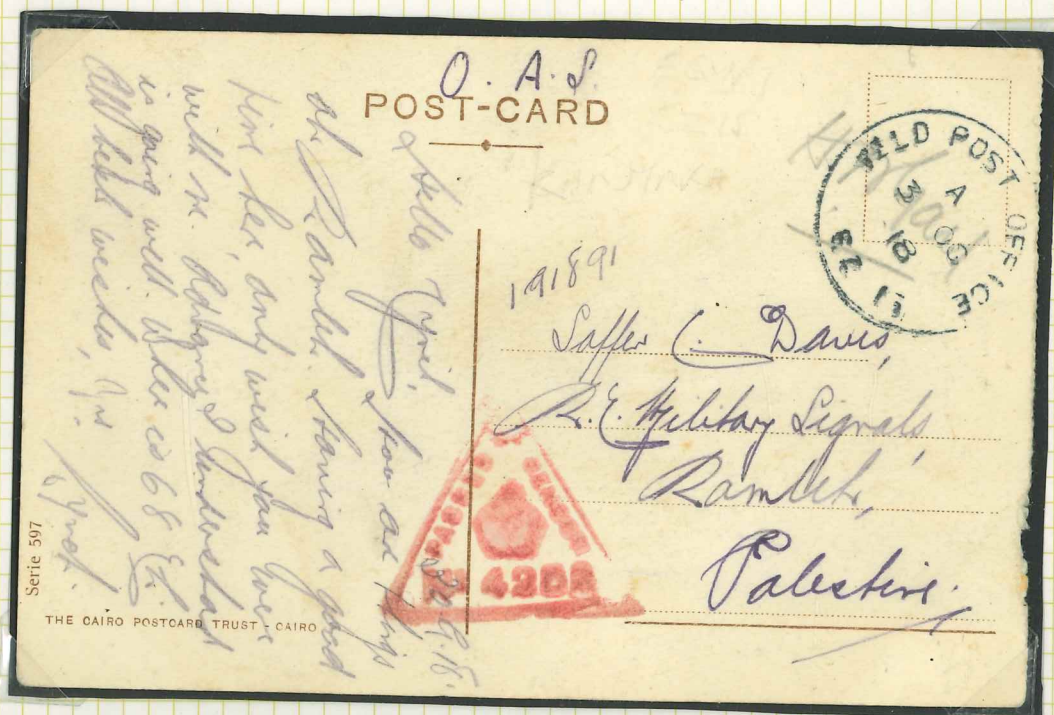 O. A. S.
POST-CARD
FIELD POST OFFICE
A
3 OC
18
191891
Sapper C. Davies,
R.E. Military Signals,
Ramleh,
Palestine.
PASSED CENSOR
4208
Hello Cyril,
How are things
at Ramleh. Having a good
time here, only wish you were
with me. Rodgers I understand
is going well.
All best wishes, Yrs
Serie 597
THE CAIRO POSTCARD TRUST - CAIRO